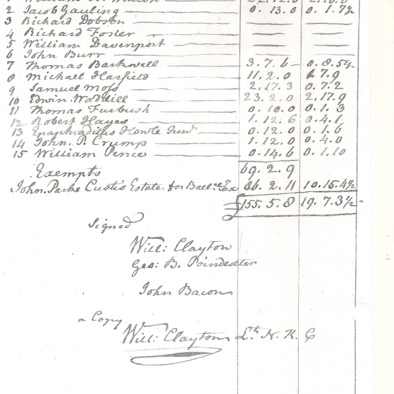 2 Jacob Gauling 0.13.0 0.1.72
3 Richard Dobson
4 Richard Foster
5 William Davenport
6 John Burr
7 Thomas Barknell 3.7.6 0.8.5¼
8 Michael Hasfield 11.2.0 1.7.9
9 Samuel Moss 2.17.3 0.7.2
10 Edwin Waddill 23.2.0 2.17.9
11 Thomas Furbush 0.10.0 0.1.3
12 Robert Hayes 1.12.6 0.4.1
13 Howle Junr 0.12.0 0.1.6
14 John P. Crump 1.12.0 0.4.0
15 William Pence 0.14.6 0.1.10
Exempts 69.2.9
John Parke Custis Estate for Ballce Tax 86.2.11 10.15.4½
£155.5.8 19.7.3½
Signed
Will: Clayton
Geo: B. Poindexter
John Bacon
a Copy
Will: Clayton N. K. C